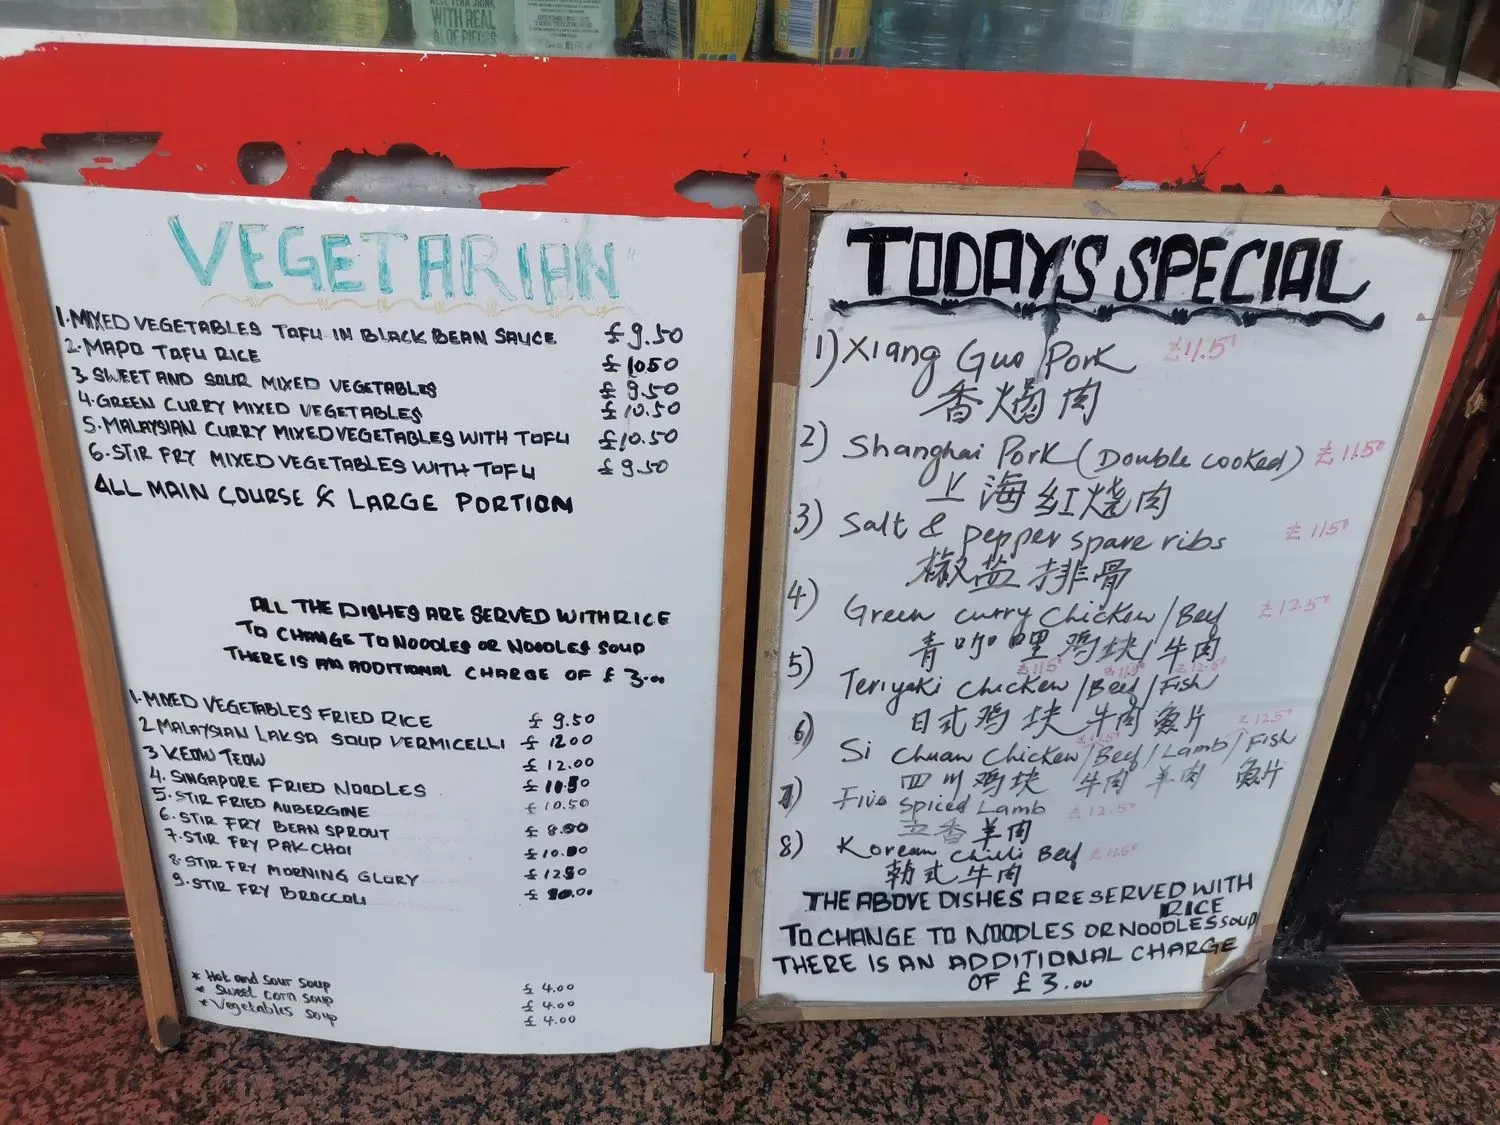 ALOE VERA DRINK
WITH REAL
ALOE PIECES
VEGETARIAN
1. MIXED VEGETABLES TOFU IN BLACK BEAN SAUCE £9.50
2. MAPO TOFU RICE £10.50
3. SWEET AND SOUR MIXED VEGETABLES £9.50
4. GREEN CURRY MIXED VEGETABLES £10.50
5. MALAYSIAN CURRY MIXED VEGETABLES WITH TOFU £10.50
6. STIR FRY MIXED VEGETABLES WITH TOFU £9.50
ALL MAIN COURSE & LARGE PORTION
ALL THE DISHES ARE SERVED WITH RICE
TO CHANGE TO NOODLES OR NOODLES SOUP
THERE IS AN ADDITIONAL CHARGE OF £3.00
1. MIXED VEGETABLES FRIED RICE £9.50
2 MALAYSIAN LAKSA SOUP VERMICELLI £12.00
3 KEOW TEOW £12.00
4. SINGAPORE FRIED NOODLES £10.50
5. STIR FRIED AUBERGINE £10.50
6. STIR FRY BEAN SPROUT £8.90
7. STIR FRY PAK CHOI £10.50
8. STIR FRY MORNING GLORY £12.50
9. STIR FRY BROCCOLI £10.00
* Hot and sour soup £4.00
* Sweet corn soup £4.00
* Vegetables soup £4.00
TODAY'S SPECIAL
1) Xiang Guo Pork £11.50
香焗肉
2) Shanghai Pork (Double cooked) £11.50
上海红烧肉
3) Salt & pepper spare ribs £11.50
椒盐排骨
4) Green curry Chicken/Beef £12.50
青咖喱鸡块/牛肉
£11.5 £11.5 £12.5
5) Teriyaki Chicken/Beef/Fish
日式鸡块 牛肉 魚片
£12.50
6) Si Chuan Chicken/Beef/Lamb/Fish
四川鸡块 牛肉 羊肉 魚片
7) Five Spiced Lamb £12.50
五香羊肉
8) Korean Chilli Beef £11.50
韩式牛肉
THE ABOVE DISHES ARE SERVED WITH
RICE
TO CHANGE TO NOODLES OR NOODLES SOUP
THERE IS AN ADDITIONAL CHARGE
OF £3.00